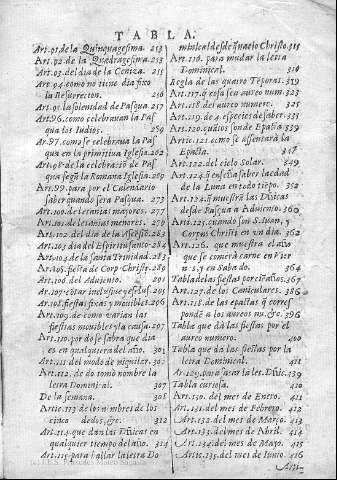 TABLA.
Art. 91. de la Quinquagesima. 253
Art. 92. de la Quadragesima. 253
Art. 93. del dia de la Ceniza. 255
Art. 94. como no tiene dia fixo
la Resurrecion. 256
Art. 95. la solenidad de Pasqua 257
Art. 96. como celebrauan la Pas
qua los Iudios. 259
Ar. 97. como se celebraua la Pas
qua en la primitiua Iglesia. 262
Art. 98. de la celebraciō de Pas
qua segū la Romana Iglesia
Art. 99. para por el Calendario
saber quando sera Pasqua. 273
Art. 100. de letanias mayores. 277
Art. 101. de letanias menores. 279
Art. 102. del dia de la 283
Art. 103. dia del Espiritu santo. 284
Art. 104. de la santa Trinidad. 283
Art. 105. fiesta de Corp. Christi. 289
Art. 106. del Aduiento. 291
Art. 107. 295
Ar. 108. fiestas fixas y mouibles. 296
Art. 109. de como varian las
fiestas mouibles y la causa. 297
Art. 110. por do se sabra que dia
es en qualquiera del año. 301
Art. 111. del modo de 302
Art. 112. de do tomò nombre la
letra Dominical. 307
De la semana. 308
Artic. 113. de los nōbres de los
cinco dedos, &c. 312
Art. 114. que dan las Diuicas en
qualquier tiempo del año. 314
Art. 115. para hallar la letra Do
minical desde que nacio Christo. 315
Art. 116. para mudar la letra
Dominical. 319
Regla de las quatro Tēporas. 319
Art. 117. que cosa sea aureo num. 323
Art. 118. del aureo numero. 325
Art. 119. de 4 especies de saber. 335
Art. 120. 339
Artic. 121. como se assentarà la
Epacta. 348
Art. 122. del ciclo Solar. 349
Art. 123. q̄ enseña saber la edad
de la Luna en todo tiēpo. 352
Art. 124. q̄ muestra las Diuicas
desde Pasqua a Aduiento. 360
Art. 125. cuando son S. Iuan, y
Corpus Christi en vn dia. 362
Art. 126. que muestra el año
que se comerà carne en Vier
nes, y en Sabado. 364
Tabla delas fiestas por 367
Art. 127. de los Caniculares. 386
Art. 128. de las epactas q̄ corres
ponde a los aureos nu. &c. 396
Tabla que dà las fiestas por el
aureo numero. 400
Tabla que dà las fiestas por la
letra Dominical. 401
Ar. 129. para 139
Tabla curiosa. 410
Art. 130. del mes de Enero. 411
Art. 131. del mes de Febrero. 412
Art. 132. del mes de Março. 413
Art. 133. del mes de Abril. 414
Art. 134. del mes de Mayo. 415
Art. 135. del mes de Iunio. 416